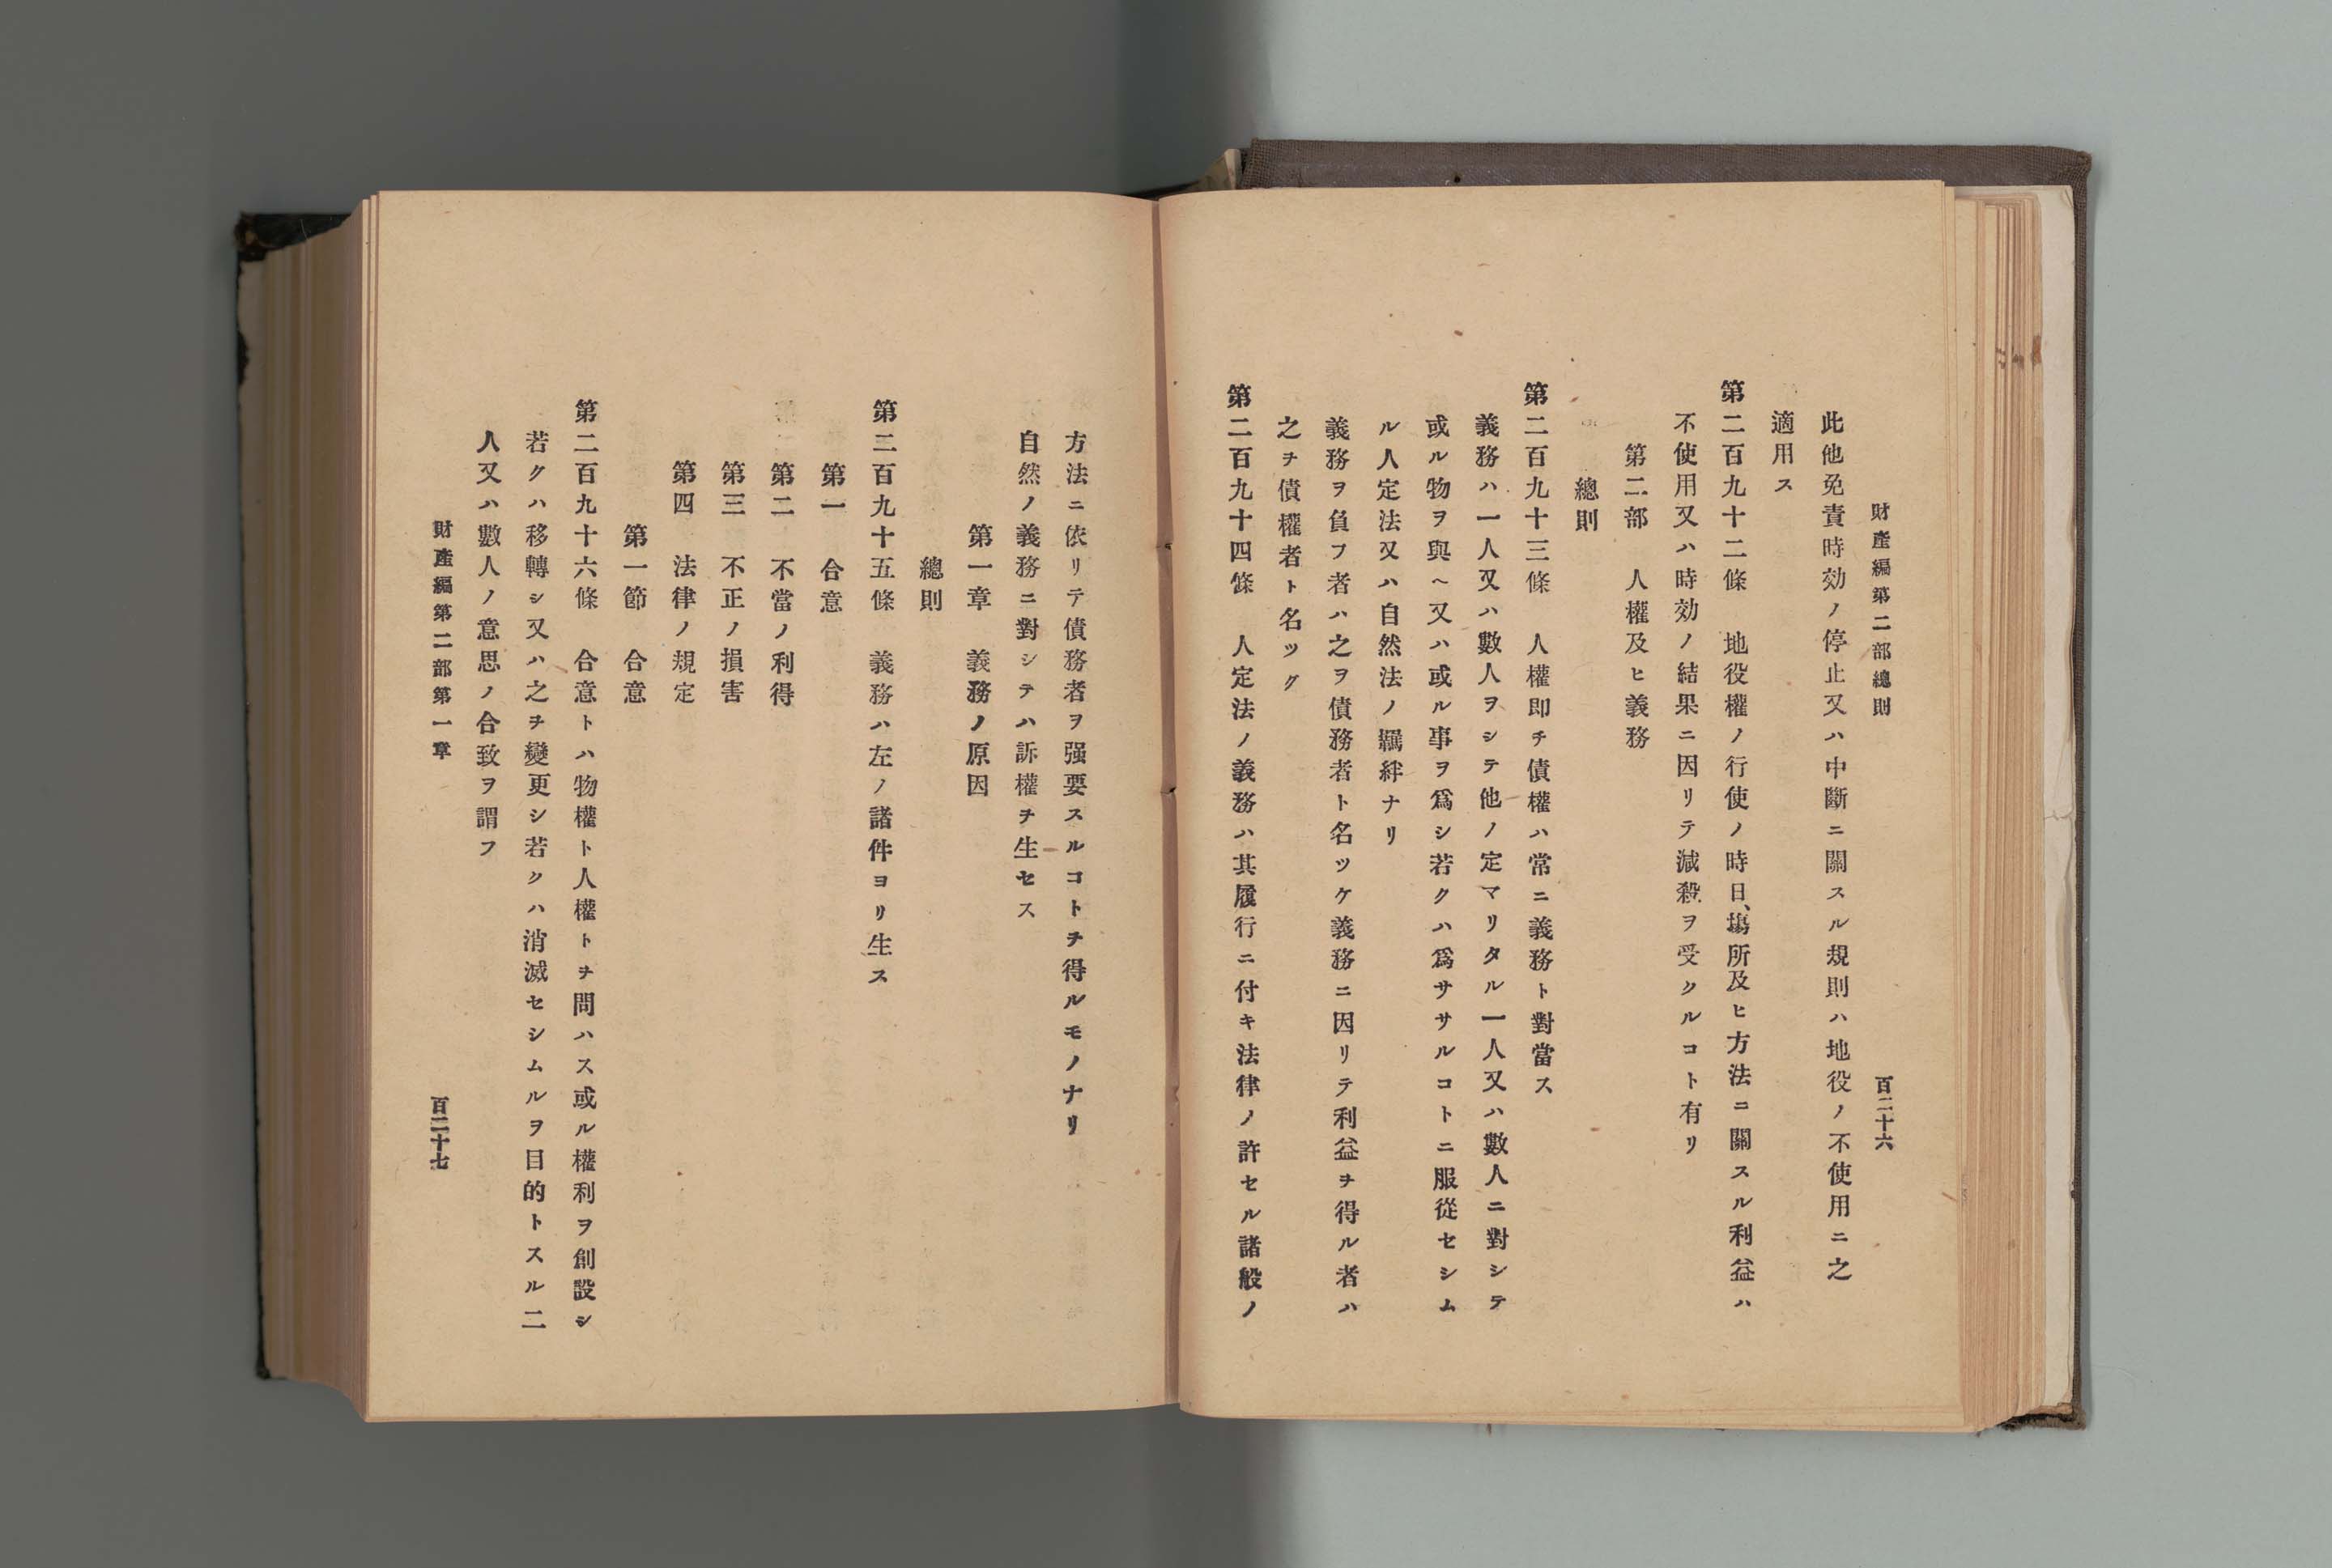 財產編第二部總則
百二十六
此他免責時効ノ停止又ハ中斷ニ關スル規則ハ地役ノ不使用ニ之
適用ス
第二百九十二條　地役權ノ行使ノ時日、塲所及ヒ方法ニ關スル利益ハ
不使用又ハ時効ノ結果ニ因リテ減殺ヲ受クルコト有リ
第二部　人權及ヒ義務
總則
第二百九十三條　人權即チ債權ハ常ニ義務ト對當ス
義務ハ一人又ハ數人ヲシテ他ノ定マリタル一人又ハ數人ニ對シテ
或ル物ヲ與ヘ又ハ或ル事ヲ爲シ若クハ爲サヽルコトニ服從セシム
ル人定法又ハ自然法ノ羈絆ナリ
義務ヲ負フ者ハ之ヲ債務者ト名ツケ義務ニ因リテ利益ヲ得ル者ハ
之ヲ債權者ト名ツク
第二百九十四條　人定法ノ義務ハ其履行ニ付キ法律ノ許セル諸般ノ
方法ニ依リテ債務者ヲ强要スルコトヲ得ルモノナリ
自然ノ義務ニ對シテハ訴權ヲ生セス
第一章　義務ノ原因
總則
第二百九十五條　義務ハ左ノ諸件ヨリ生ス
第一　合意
第二　不當ノ利得
第三　不正ノ損害
第四　法律ノ規定
第一節　合意
第二百九十六條　合意トハ物權ト人權トヲ問ハス或ル權利ヲ創設シ
若クハ移轉シ又ハ之ヲ變更シ若クハ消滅セシムルヲ目的トスル二
人又ハ數人ノ意思ノ合致ヲ謂フ
財產編第二部第一章
百二十七